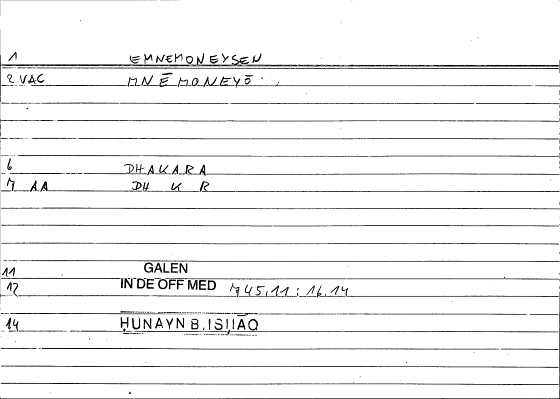 1 EMNEMONEYSEN
2 VAC MNĒMONEYŌ
6 DHAKARA
7 AA DH K R
11 GALEN
12 IN DE OFF MED 745,11 : 16.14
14 ḤUNAYN B.ISḤĀQ